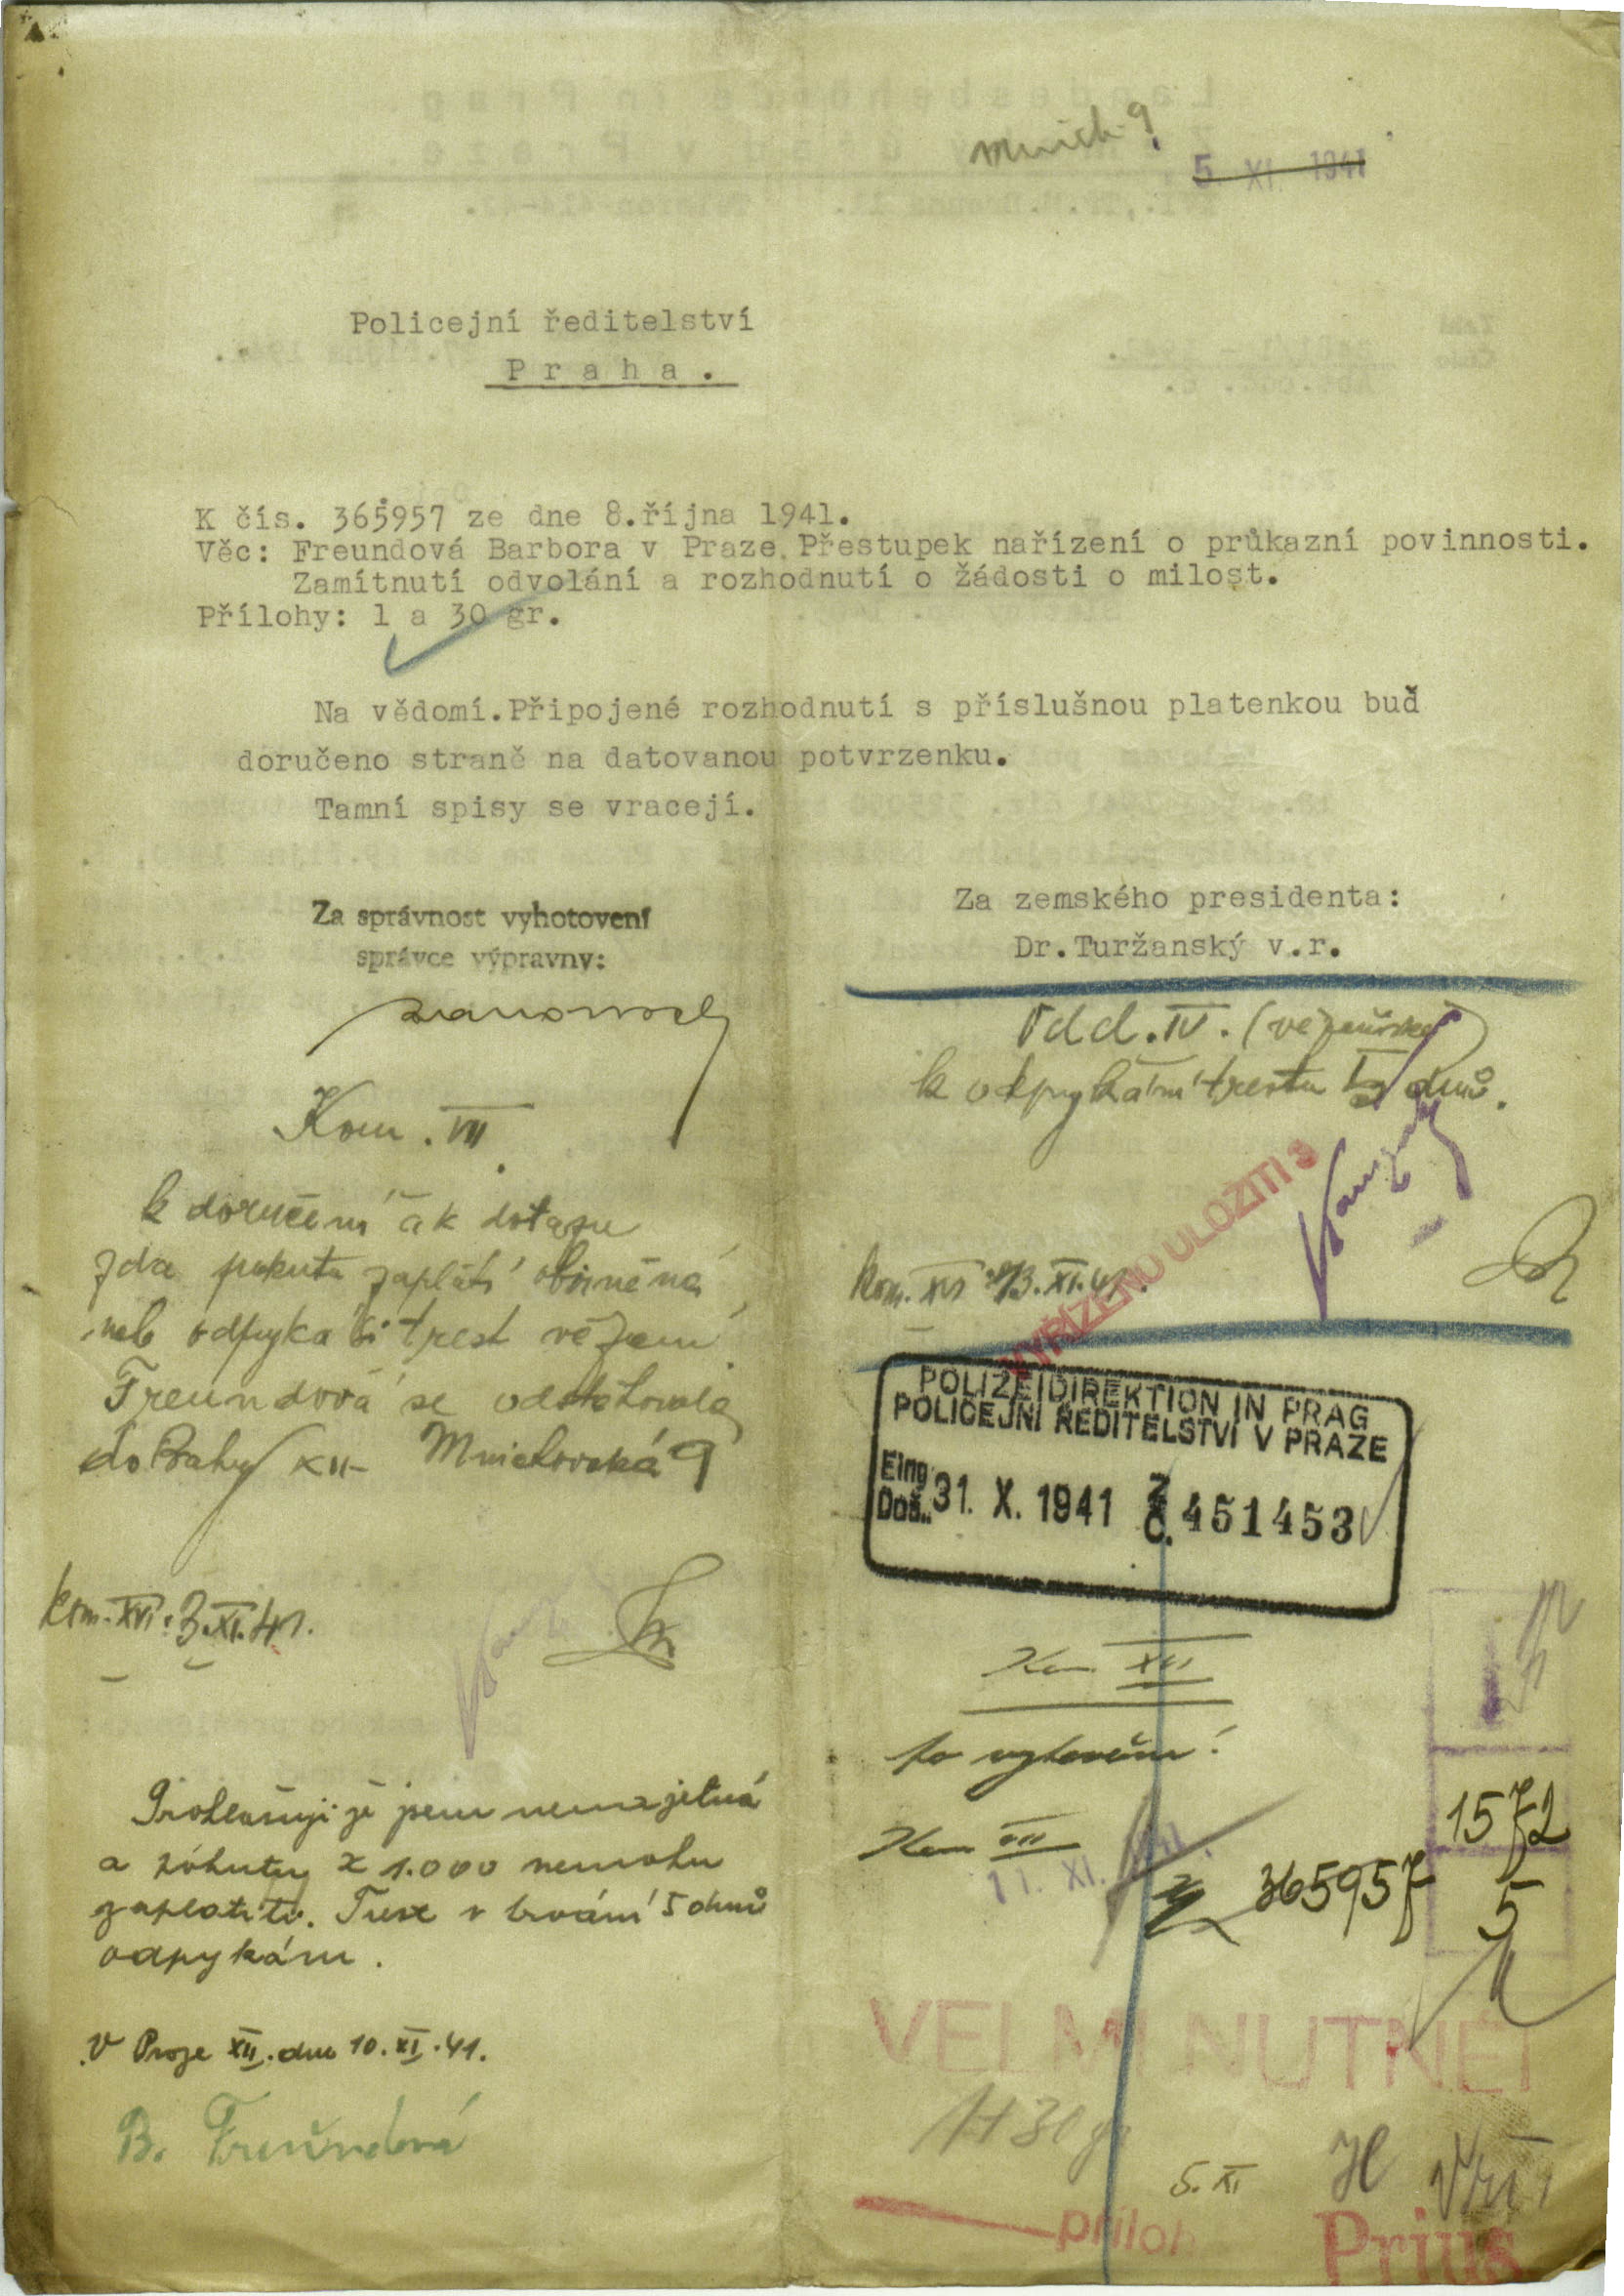 5 XI 1941
Policejní ředitelství
Praha.
K čís. 365957 ze dne 8.října 1941.
Věc: Freundová Barbora v Praze. Přestupek nařízení o průkazní povinnosti.
Zamítnutí odvolání a rozhodnutí o žádosti o milost.
Přílohy: 1 a 30 gr.
Na vědomí.Připojené rozhodnutí s příslušnou platenkou buď
doručeno straně na datovanou potvrzenku.
Tamní spisy se vracejí.
Za správnost vyhotovení
správce výpravny:
Kom. VII
k doručení a k dotazu
zda pokutu zaplatí obviněná
neb odpyká si trest vězení
Freundová se odstěhovala
do Prahy XII- Mnichovská 9
kom. XVI. 3.XI.41.
Prohlašuji že jsem nemajetná
a pokutu K 1.000 nemohu
zaplatiti. Trest v trvání 5 dnů
odpykám.
V Praze XII. dne 10.XI.41.
B. Freundová
Za zemského presidenta:
Dr.Turžanský v.r.
Odd.IV. (
k odpykání trestu 5 dnů.
VYŘÍZENO ULOŽITI
kom. XVI 3.XI.41.
POLIZEIDIREKTION IN PRAG
POLICEJNÍ ŘEDITELSTVÍ V PRAZE
Eing.
Doš. 31. X. 1941 Z. Č. 451453
Kom XII
Kom VII
11. XI.
1572
365957
5
VELMI NUTNÉ!
1+30 gr
5.XI
příloh
Prius